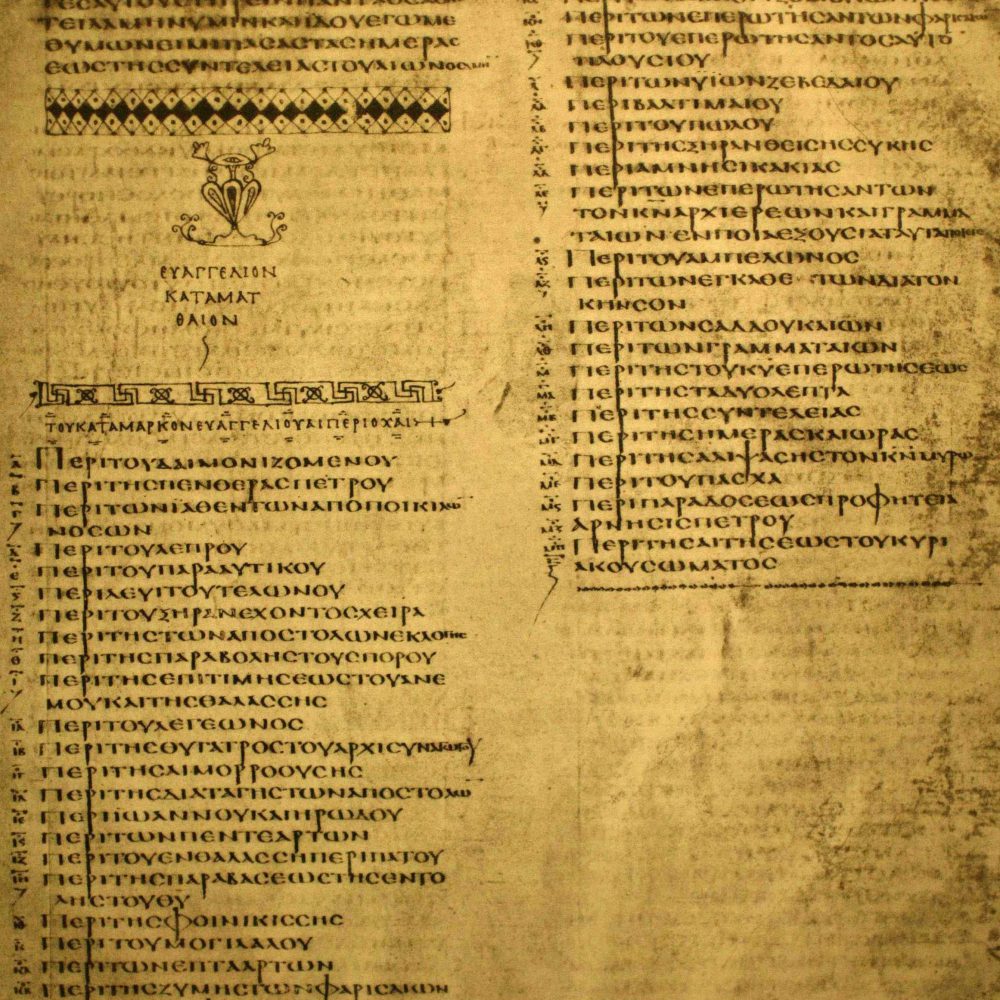 ΤΕΙΛΑΜΗΝΥΜΙΝΚΑΙΙΔΟΥΕΓΩΜΕ
ΘΥΜΩΝΕΙΜΙΠΑСΑСΤΑСΗΜΕΡΑС
ΕΩСΤΗССΥΝΤΕΛΕΙΑСΤΟΥΑΙΩΝΟС
ΕΥΑΓΓΕΛΙΟΝ
ΚΑΤΑΜΑΤ
ΘΑΙΟΝ
ΤΟΥΚΑΤΑΜΑΡΚΟΝΕΥΑΓΓΕΛΙΟΥΑΙΠΕΡΙΟΧΑΙ
Α ΠΕΡΙΤΟΥΔΑΙΜΟΝΙΖΟΜΕΝΟΥ
Β ΠΕΡΙΤΗСΠΕΝΘΕΡΑСΠΕΤΡΟΥ
Γ ΠΕΡΙΤΩΝΪΑΘΕΝΤΩΝΑΠΟΠΟΙΚΙΛΩ
ΝΟСΩΝ
Δ ΠΕΡΙΤΟΥΛΕΠΡΟΥ
Ε ΠΕΡΙΤΟΥΠΑΡΑΛΥΤΙΚΟΥ
ΠΕΡΙΛΕΥΙΤΟΥΤΕΛΩΝΟΥ
Ζ ΠΕΡΙΤΟΥΞΗΡΑΝΕΧΟΝΤΟСΧΕΙΡΑ
Η ΠΕΡΙΤΗСΤΩΝΑΠΟСΤΟΛΩΝΕΚΛΟΓΗС
Θ ΠΕΡΙΤΗСΠΑΡΑΒΟΛΗСΤΟΥСΠΟΡΟΥ
Ι ΠΕΡΙΤΗСΕΠΙΤΙΜΗСΕΩСΤΟΥΑΝΕ
ΜΟΥΚΑΙΤΗСΘΑΛΑССΗС
ΙΑ ΠΕΡΙΤΟΥΛΕΓΕΩΝΟС
ΙΒ ΠΕΡΙΤΗСΘΥΓΑΤΡΟСΤΟΥΑΡΧΙСΥΝΑΓΩΓΟΥ
ΙΓ ΠΕΡΙΤΗСΑΙΜΟΡΡΟΟΥСΗС
ΙΔ ΠΕΡΙΤΗСΔΙΑΤΑΓΗСΤΩΝΑΠΟСΤΟΛΩ
ΙΕ ΠΕΡΙΪΩΑΝΝΟΥΚΑΙΗΡΩΔΟΥ
ΙϚ ΠΕΡΙΤΩΝΠΕΝΤΕΑΡΤΩΝ
ΙΖ ΠΕΡΙΤΟΥΕΝΘΑΛΑССΗΠΕΡΙΠΑΤΟΥ
ΙΗ ΠΕΡΙΤΗСΠΑΡΑΒΑСΕΩСΤΗСΕΝΤΟ
ΛΗСΤΟΥΘΥ
ΙΘ ΠΕΡΙΤΗСΦΟΙΝΙΚΙССΗС
Κ ΠΕΡΙΤΟΥΜΟΓΙΛΑΛΟΥ
ΚΑ ΠΕΡΙΤΩΝΕΠΤΑΑΡΤΩΝ
ΠΕΡΙΤΗСΖΥΜΗСΤΩΝΦΑΡΙСΑΙΩΝ
ΠΕΡΙΤΩΝΕΠΕΡΩΤΗСΑΝΤΩΝΦΑΡΙС
ΠΕΡΙΤΟΥΕΠΕΡΩΤΗСΑΝΤΟСΑΥΤΟ
ΠΛΟΥСΙΟΥ
Λ ΠΕΡΙΤΩΝΥΙΩΝΖΕΒΕΔΑΙΟΥ
ΛΑ ΠΕΡΙΒΑΡΤΙΜΑΙΟΥ
ΛΒ ΠΕΡΙΤΟΥΠΩΛΟΥ
ΛΓ ΠΕΡΙΤΗСΞΗΡΑΝΘΕΙСΗССΥΚΗС
ΛΔ ΠΕΡΙΑΜΝΗСΙΚΑΚΙΑС
ΛΕ ΠΕΡΙΤΩΝΕΠΕΡΩΤΗСΑΝΤΩΝ
ΤΟΝΚΝΑΡΧΙΕΡΕΩΝΚΑΙΓΡΑΜΜΑ
ΤΑΙΩΝΕΝΠΟΙΑΕΞΟΥСΙΑΤΑΥΤΑΠΟΙΕΙС
ΛϚ ΠΕΡΙΤΟΥΑΜΠΕΛΩΝΟС
ΛΖ ΠΕΡΙΤΩΝΕΓΚΑΘΕ ΤΩΝΔΙΑΤΟΝ
ΚΗΝСΟΝ
ΛΗ ΠΕΡΙΤΩΝСΑΔΔΟΥΚΑΙΩΝ
ΛΘ ΠΕΡΙΤΩΝΓΡΑΜΜΑΤΑΙΩΝ
Μ ΠΕΡΙΤΗСΤΟΥΚΥΕΠΕΡΩΤΗСΕΩС
ΜΑ ΠΕΡΙΤΗСΤΑΔΥΟΛΕΠΤΑ
ΜΒ ΠΕΡΙΤΗССΥΝΤΕΛΕΙΑС
ΜΓ ΠΕΡΙΤΗСΗΜΕΡΑСΚΑΙΩΡΑС
ΜΔ ΠΕΡΙΤΗСΑΛΙΨΑСΗСΤΟΝΚΝΜΥΡΩ
ΜΕ ΠΕΡΙΤΟΥΠΑСΧΑ
ΜϚ ΠΕΡΙΠΑΡΑΔΟСΕΩСΠΡΟΦΗΤΕΙΑ
ΜΖ ΑΡΝΗСΙСΠΕΤΡΟΥ
ΜΗ ΠΕΡΙΤΗСΑΙΤΗСΕΩСΤΟΥΚΥΡΙ
ΑΚΟΥСΩΜΑΤΟС